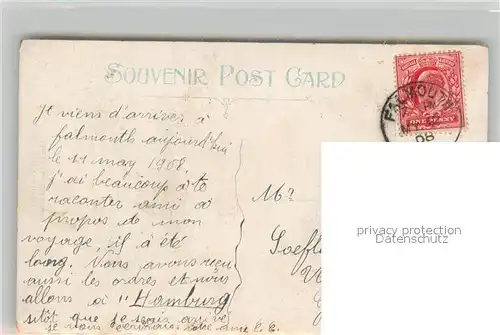 SOUVENIR POST CARD
FALMOUTH
08
ONE PENNY
Je viens d'arriver à
falmouth aujourd'hui
le 11 may 1908
j'ai beaucoup à te
raconter ami à
propos de mon
voyage, il à été
long. Nous avons reçu
aussi les ordres et nous
allons à "Hamburg
sitôt que je serai arrivé
je vous
Mr
Soefle
privacy protection
Datenschutz